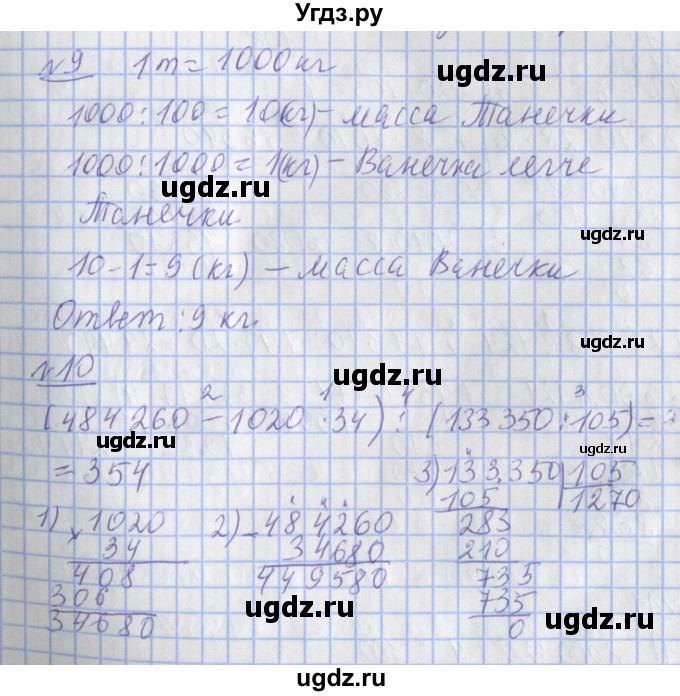 Угдз.ру
№9 1т = 1000кг
1000:100 = 10(кг) – масса Танечки
1000:1000 = 1(кг) – Ванечка легче
Танечки
10 – 1 = 9 (кг) – масса Ванечки
Ответ: 9 кг.
№10
2 1 4 3
(484260 – 1020 · 34) : (133350 : 105) =
= 354
1) × 1020
34
408
306
34680
2) – 484260
34680
449580
3) 133350 105
105 1270
283
210
735
735
0
ugdz.ru
ugdz.ru
ugdz.ru
ugdz.ru
ugdz.ru
ugdz.ru
ugdz.ru
ugdz.ru
ugdz.ru
ugdz.ru
ugdz.ru
ugdz.ru